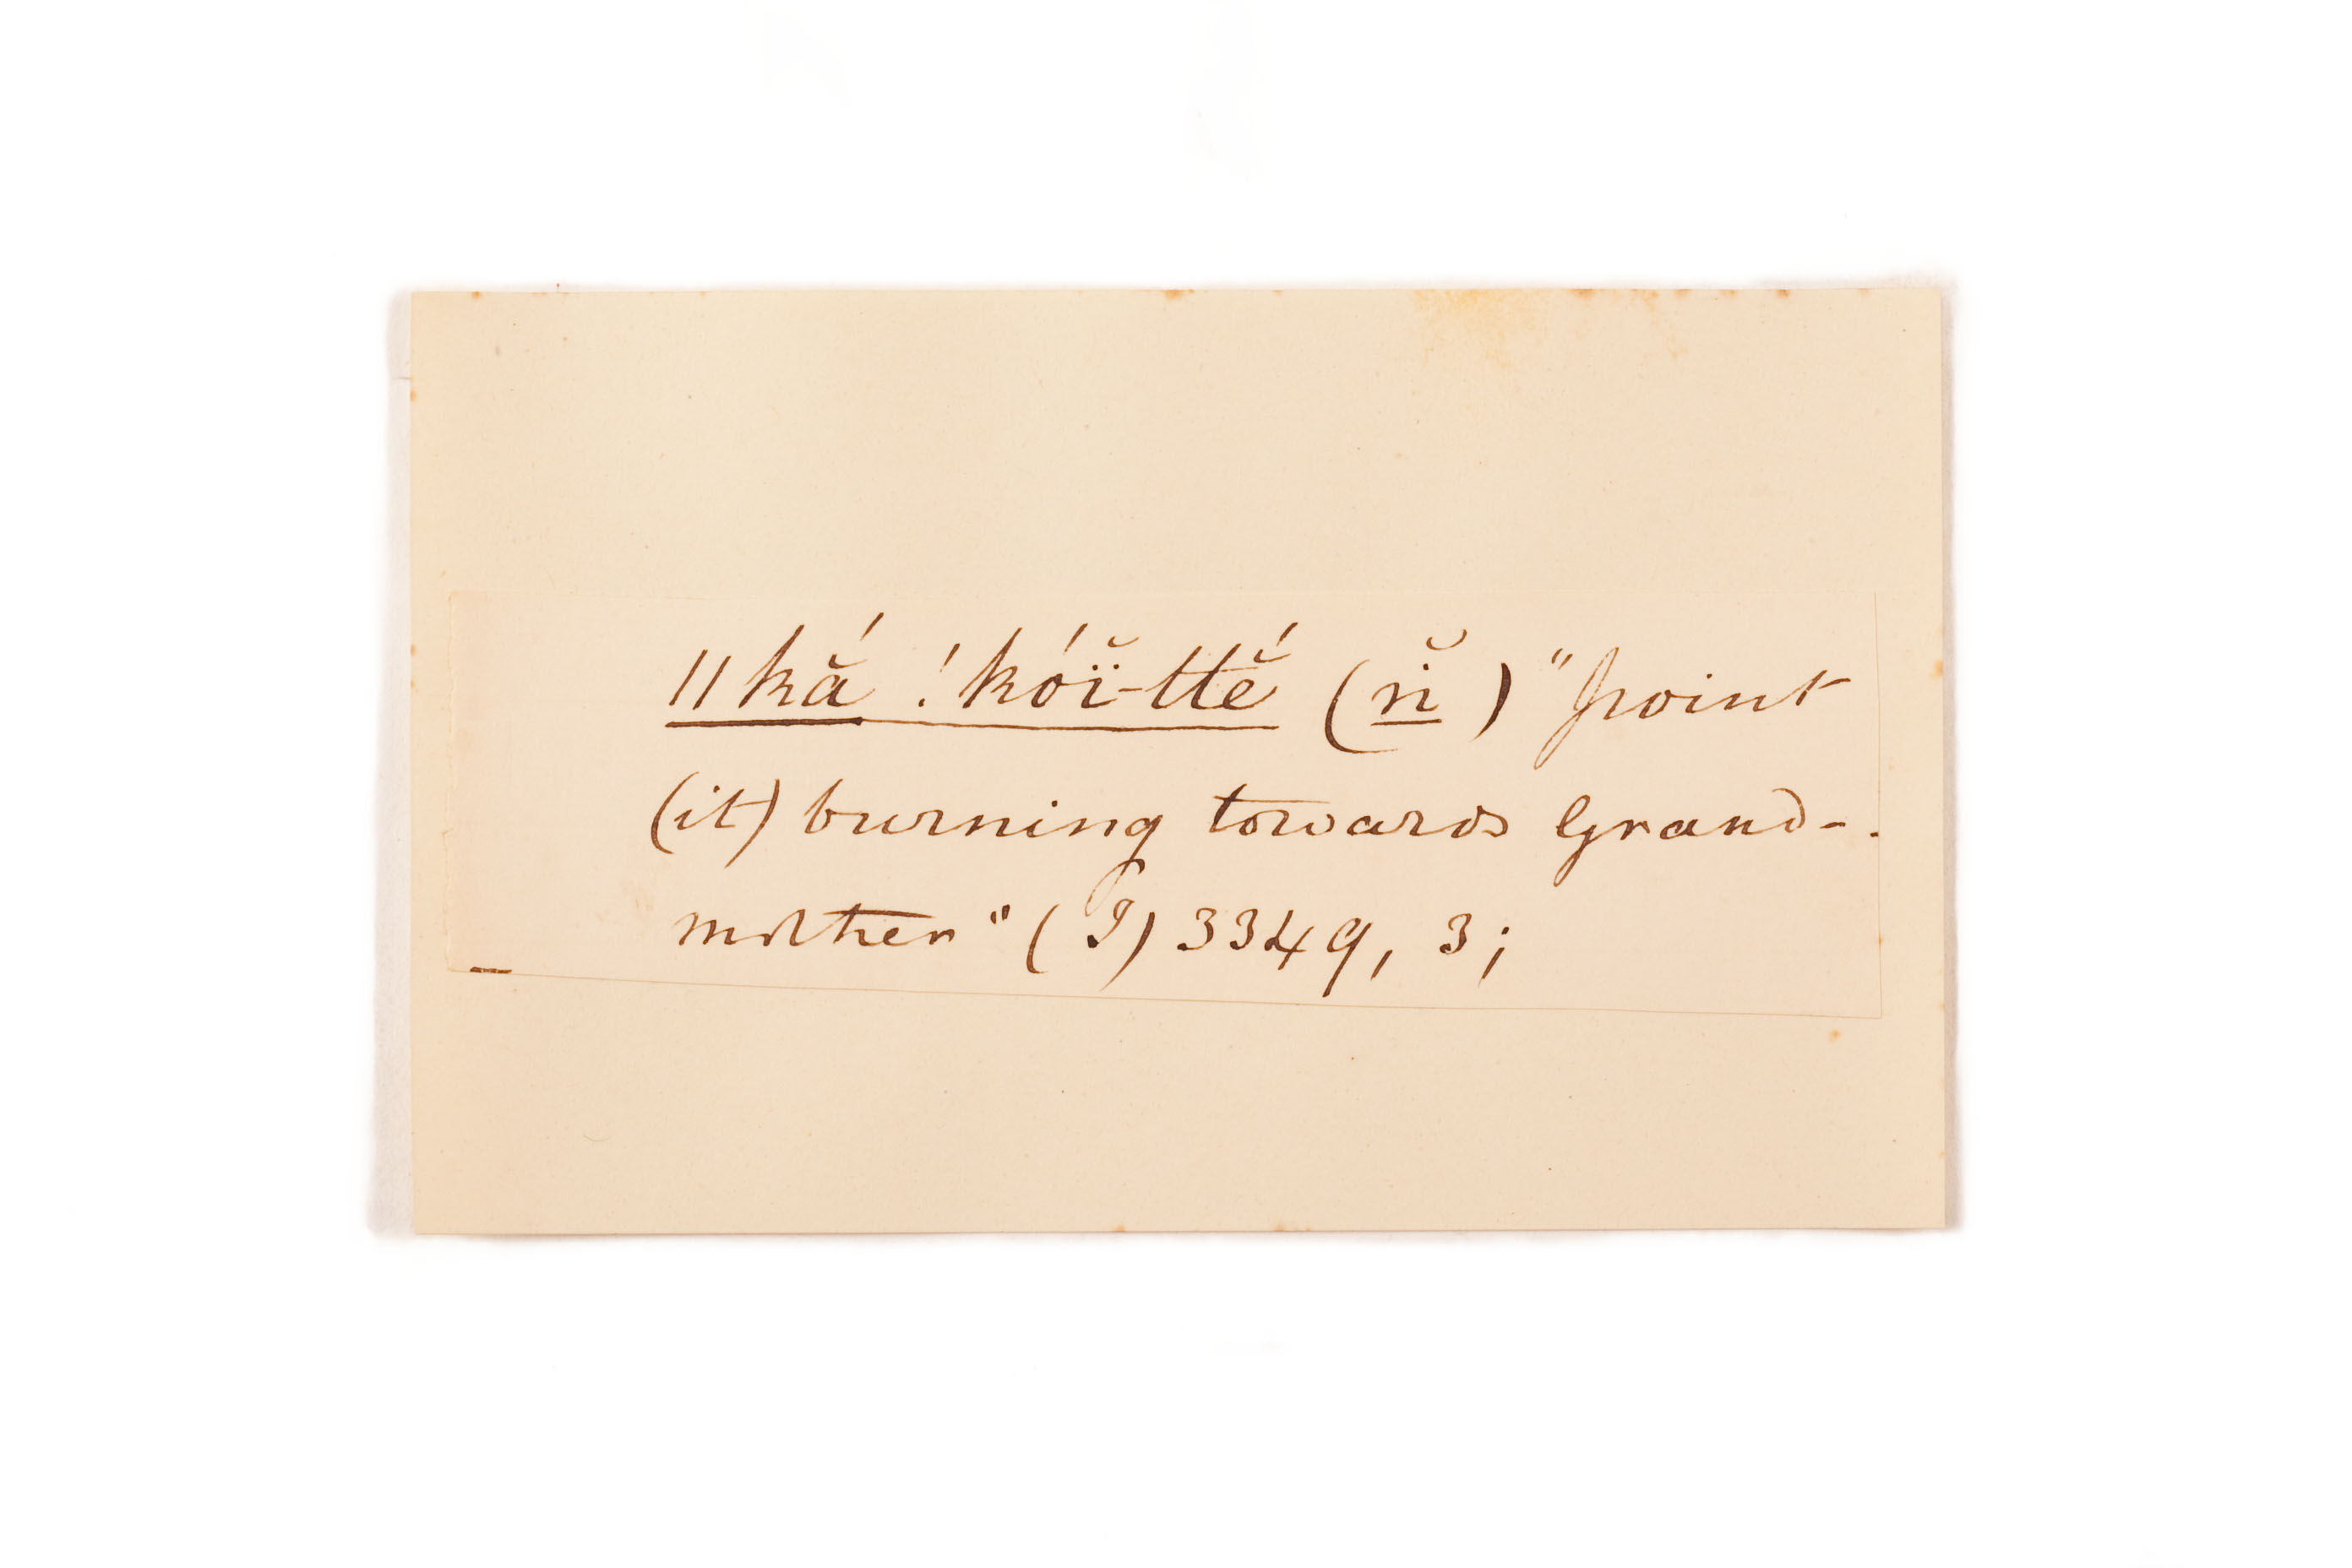 ǁkắ ǃkóï̆-ttĕ́ (n̆̇) "point
(it) burning towards Grand-
mother" (?) 3349, 3;